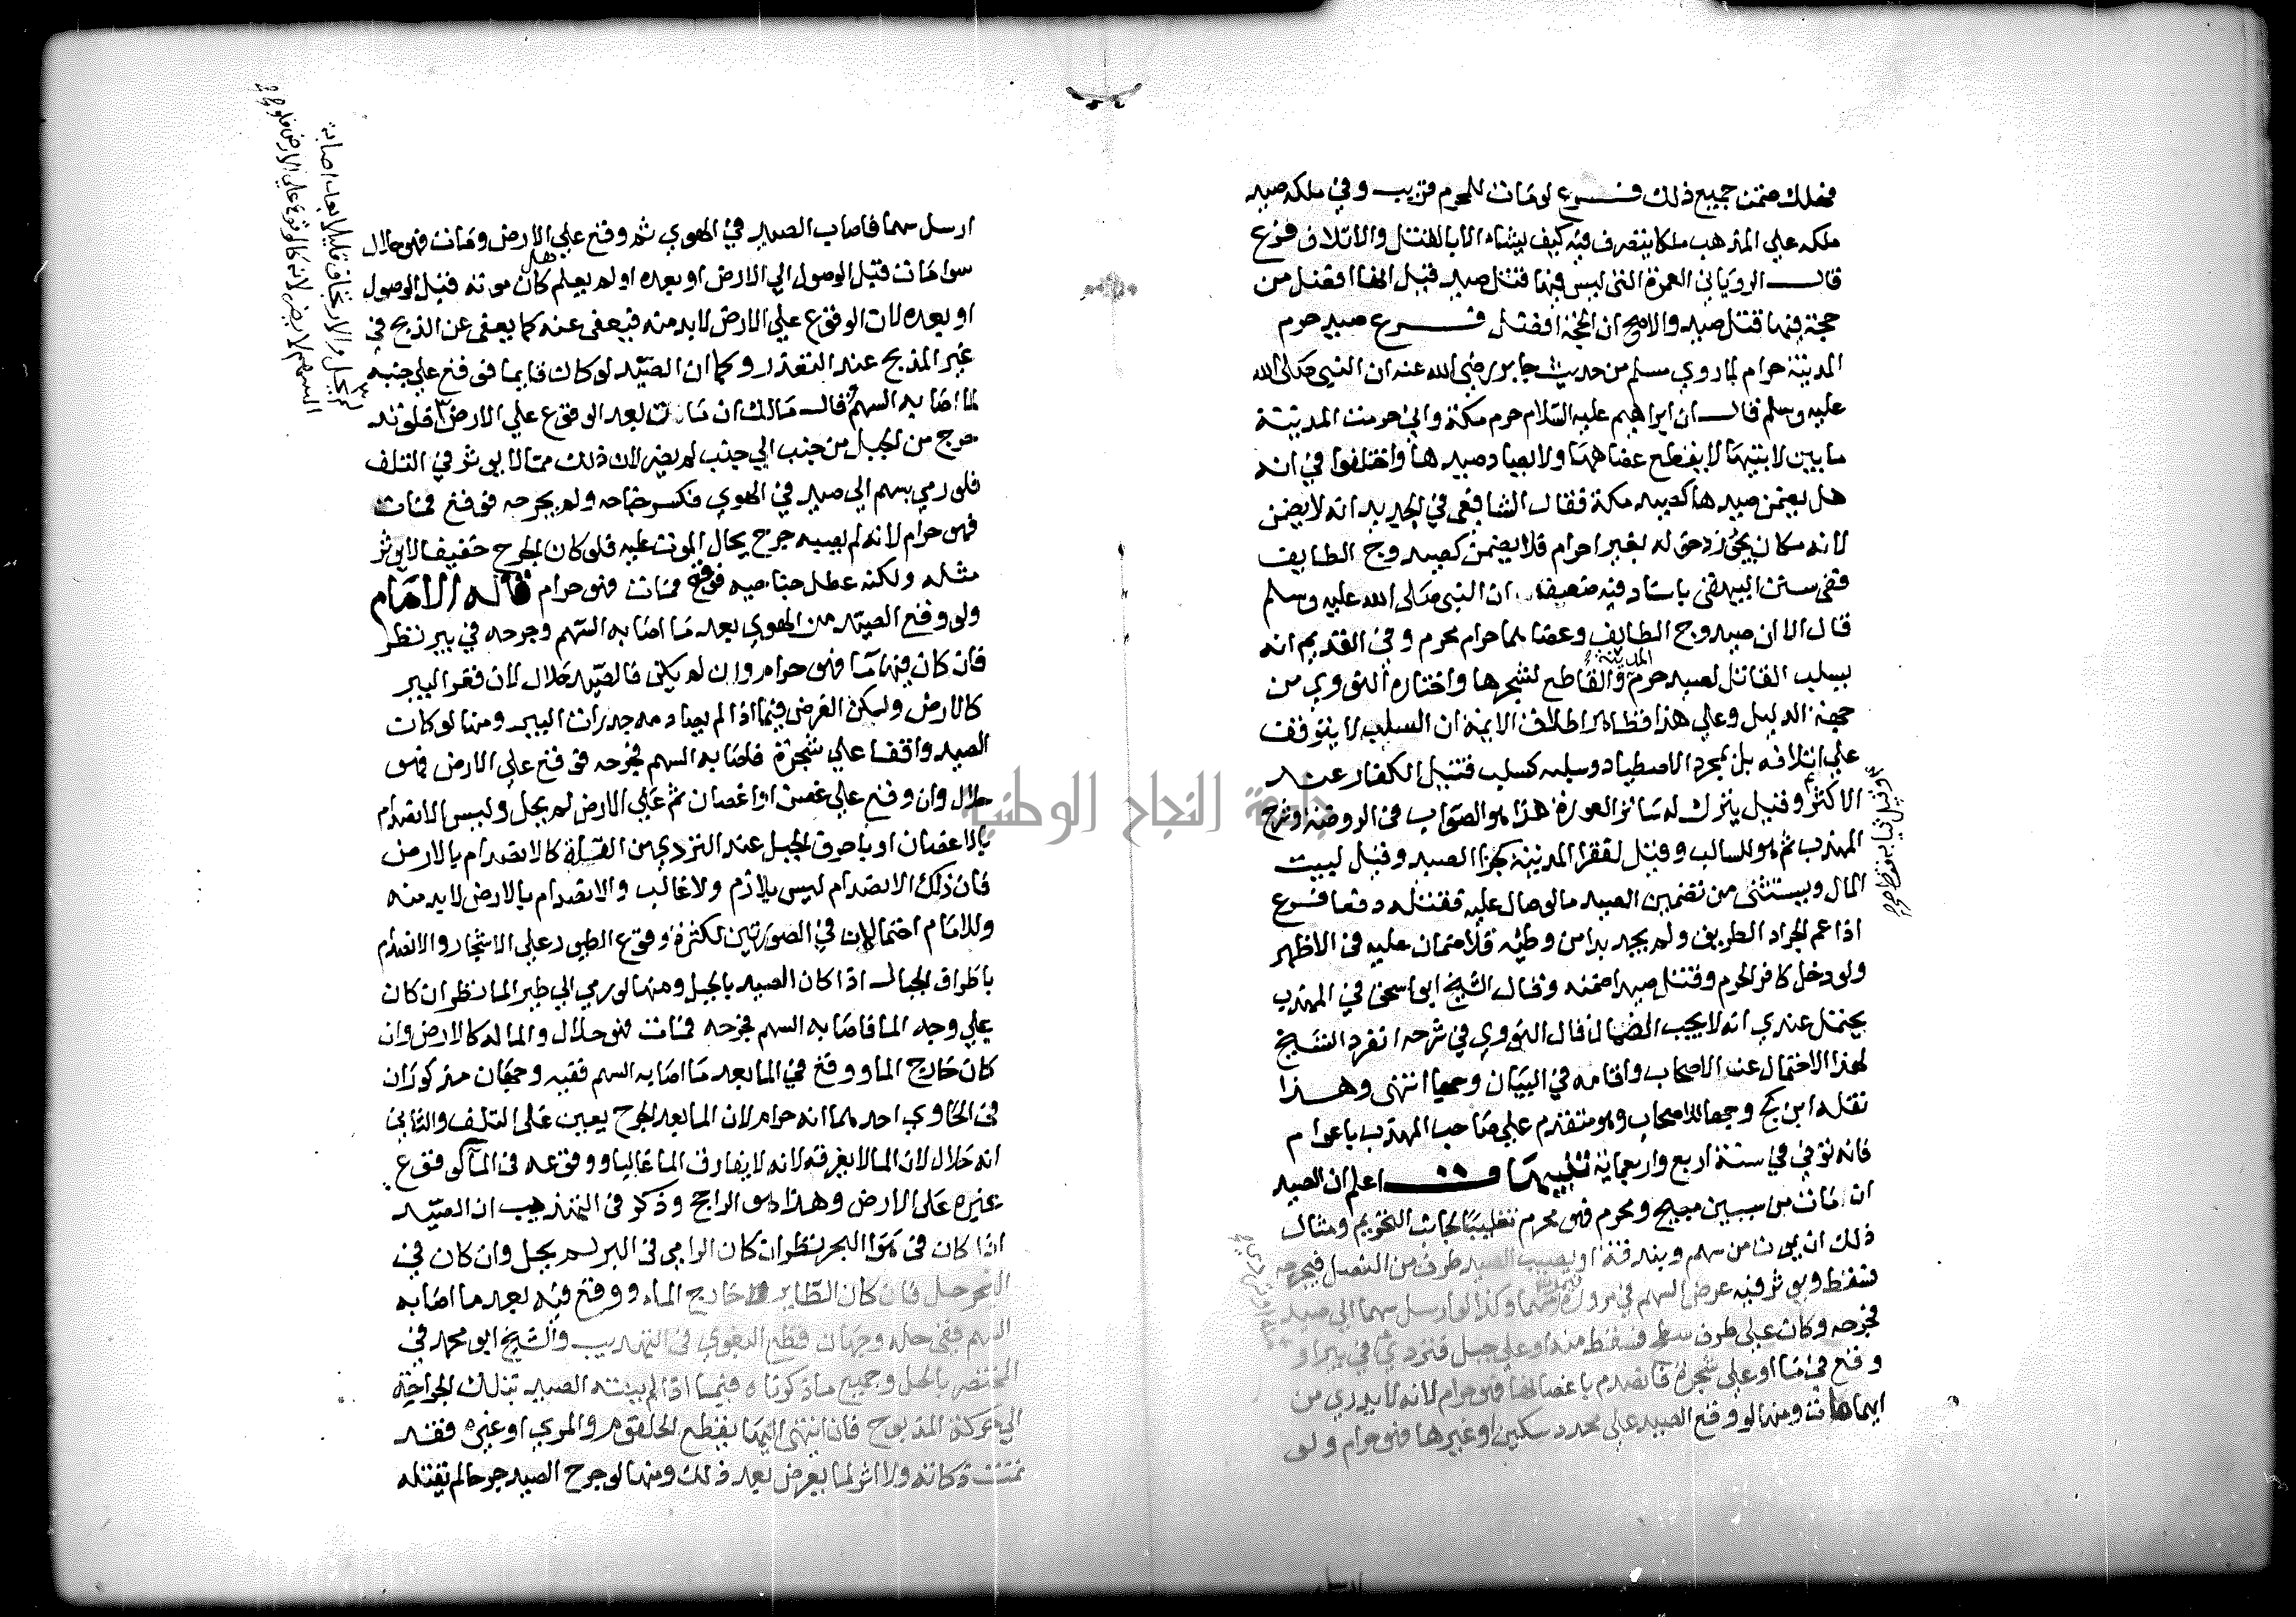 فهلك ضمن جميع ذلك فرع لو مات للمحرم قريب وفي ملكه صيد
ملكه علي المذهب ملكا يتصرف فيه كيف يشاء الا بالقتل والاتلاف فرع
قال الروياني العمرة التي ليس فيها قتل صيد قيل انها افضل من
حجة فيها قتل صيد والاصح ان الحجة افضل فرع صيد حرم
المدينة حرام لما روي مسلم من حديث جابر رضي الله عنه ان النبي صلي الله
عليه وسلم قال ان ابراهيم عليه السلام حرم مكة واني حرمت المدينة
ما بين لابتيها لا يقطع عضاهها ولا يصاد صيدها واختلفوا في انه
هل يضمن صيدها كصيد مكة فقال الشافعي في الجديد انه لا يضمن
لانه مكان يجوز دخوله بغير احرام فلا يضمن كصيد وج الطايف
ففي سنن البيهقي باسناد فيه ضعيف ان النبي صلى الله عليه وسلم
قال الا ان صيد وج الطايف وعضاهما حرام محرم وفي القديم انه
يسلب القاتل لصيد حرم المدينة والقاطع لشجرها واختاره النووي من
جهة الدليل وعلي هذا فظاهر اطلاق الايمة ان السلب لا يتوقف
علي اتلافه بل بمجرد الاصطياد وسلبه كسلب قتيل الكفار عند
الاكثر وقيل يترك له ساتر العورة هذا هو الصواب في الروضة وشرح
وقيل ثيابه فقط
المهذب ثم هو للسالب وقيل لفقرا المدينة كجزا الصيد وقيل لبيت
المال ويستثنى من تضمين الصيد ما لو صال عليه فقتله دفعا فرع
اذا عم الجراد الطريق ولم يجد بدا من وطئه فلا ضمان عليه في الاظهر
ولو دخل كافر الحرم وقتل صيدا ضمنه وقال الشيخ ابو اسحق في المهذب
يحتمل عندي انه لا يجب الضمان قال النووي في شرحه انفرد الشيخ
بهذا الاحتمال عند الاصحاب واقامه في البيان وجها انتهى وهذا
نقله ابن كج وجها للاصحاب وهو متقدم علي صاحب المهذب باعوام
فانه توفي في سنة اربع واربعماية تنبيهات اعلم ان الصيد
ان مات من سببين مبيح ومحرم فهو محرم تغليبا لجانب التحريم ومثال
ذلك ان يموت من سهم وبندقة او يصيب الصيد طرف من النصل فيجرحه
ويوثر فيه عرض السهم في مروره وكذا لو ارسل سهما الي صيد
فجرحه وكان علي طرف سطح فسقط منه او علي جبل فتردي في بير او
وقع في ما او على شجرة فانصدم باغصانها فهو حرام لانه لا يدري من
ايهما مات ومنها لو وقع الصيد علي محدد سكين او غيرها فهو حرام ولو
ارسل سهما فاصاب الصيد في الهوي ثم وقع علي الارض ومات فهو حلال
سوا مات قبل الوصول الي الارض او بعده او لم يعلم هل كان موته قبل الوصول
او بعده لان الوقوع علي الارض لا بد منه فيعفى عنه كما يعفى عن الذبح في
غير المذبح عند التعذر وكما ان الصيد لو كان قايما فوقع علي جنبه
لما اصابه السهم قال مالك ان مات بعد الوقوع علي الارض فلو تد
حرج من الجبل من جنب الي جنب لم يضر لان ذلك مما لا يوثر في التلف
فلو رمي بسهم الي صيد في الهوي فكسر جناحه ولم يجرحه فوقع فمات
فهو حرام لانه لم يصبه جرح يحال الموت عليه فلو كان الجرح خفيفا لا يوثر
مثله ولكنه عطل جناحيه فوقع فمات فهو حرام قاله الامام
ولو وقع الصيد من الهوي بعد ما اصابه السهم وجرحه في بير نظر
فان كان فيها ما فهو حرام وان لم يكن فالصيد حلال لان قعر البير
كالارض وليكن الفرض فيما اذا لم يصادمه جدران البير ومنها لو كان
الصيد واقفا علي شجرة فاصابه السهم فجرحه فوقع علي الارض فهو
حلال وان وقع علي غصن او اغصان ثم علي الارض لم يحل وليس الانصدام
بالاغصان او باحرف الجبل عند التردي من القلة كالانصدام بالارض
فان ذلك الانصدام ليس بلازم ولا غالب والانصدام بالارض لا بد منه
وللامام احتمالان في الصورتين لكثرة وقوع الطيور علي الاشجار والانصدام
باطراف الجبال اذا كان الصيد بالجبل ومنها لو رمي الي طير الما نظر ان كان
علي وجه الما فاصابه السهم فجرحه فمات فهو حلال والما له كالارض وان
كان خارج الما ووقع في الما بعد ما اصابه السهم ففيه وجهان مذكوران
في الحاوي احدهما انه حرام لان الما بعد الجرح يعين علي التلف والثاني
انه حلال لان الما لا يغرقه لانه لا يفارق الما غالبا ووقوعه في الما كوقوع
غيره على الارض وهذا هو الراجح وذكر في التهذيب ان الصيد
اذا كان في هوا البحر نظر ان كان الرامي في البر لم يحل وان كان في
البحر حل فان كان الطاير خارج الماء ووقع فيه بعد ما اصابه
السهم ففي حله وجهان قطع البغوي في التهذيب والشيخ ابو محمد في
المختصر بالحل وجميع ما ذكرناه فيما اذا لم ينته الصيد بتلك الجراحة
الي حركة المذبوح فان انتهى اليها بقطع الحلقوم والمري او غيره فقد
تمت ذكاته ولا اثر لما يعرض بعد ذلك ومنها لو جرح الصيد جرحا لم يقتله
الجبل والارتجاف قليلا بعد اصابة
السهم لا يضر لانه كالوقوع علي الارض فلو
جامعة النجاح الوطنية